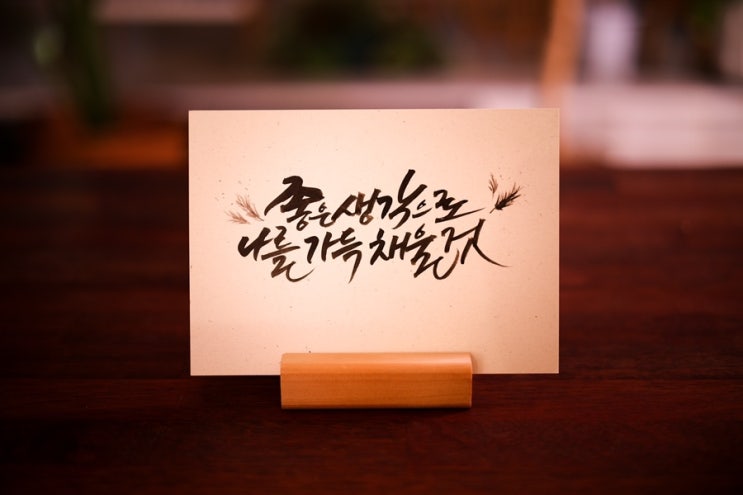 좋은 생각으로
나를 가득 채울 것